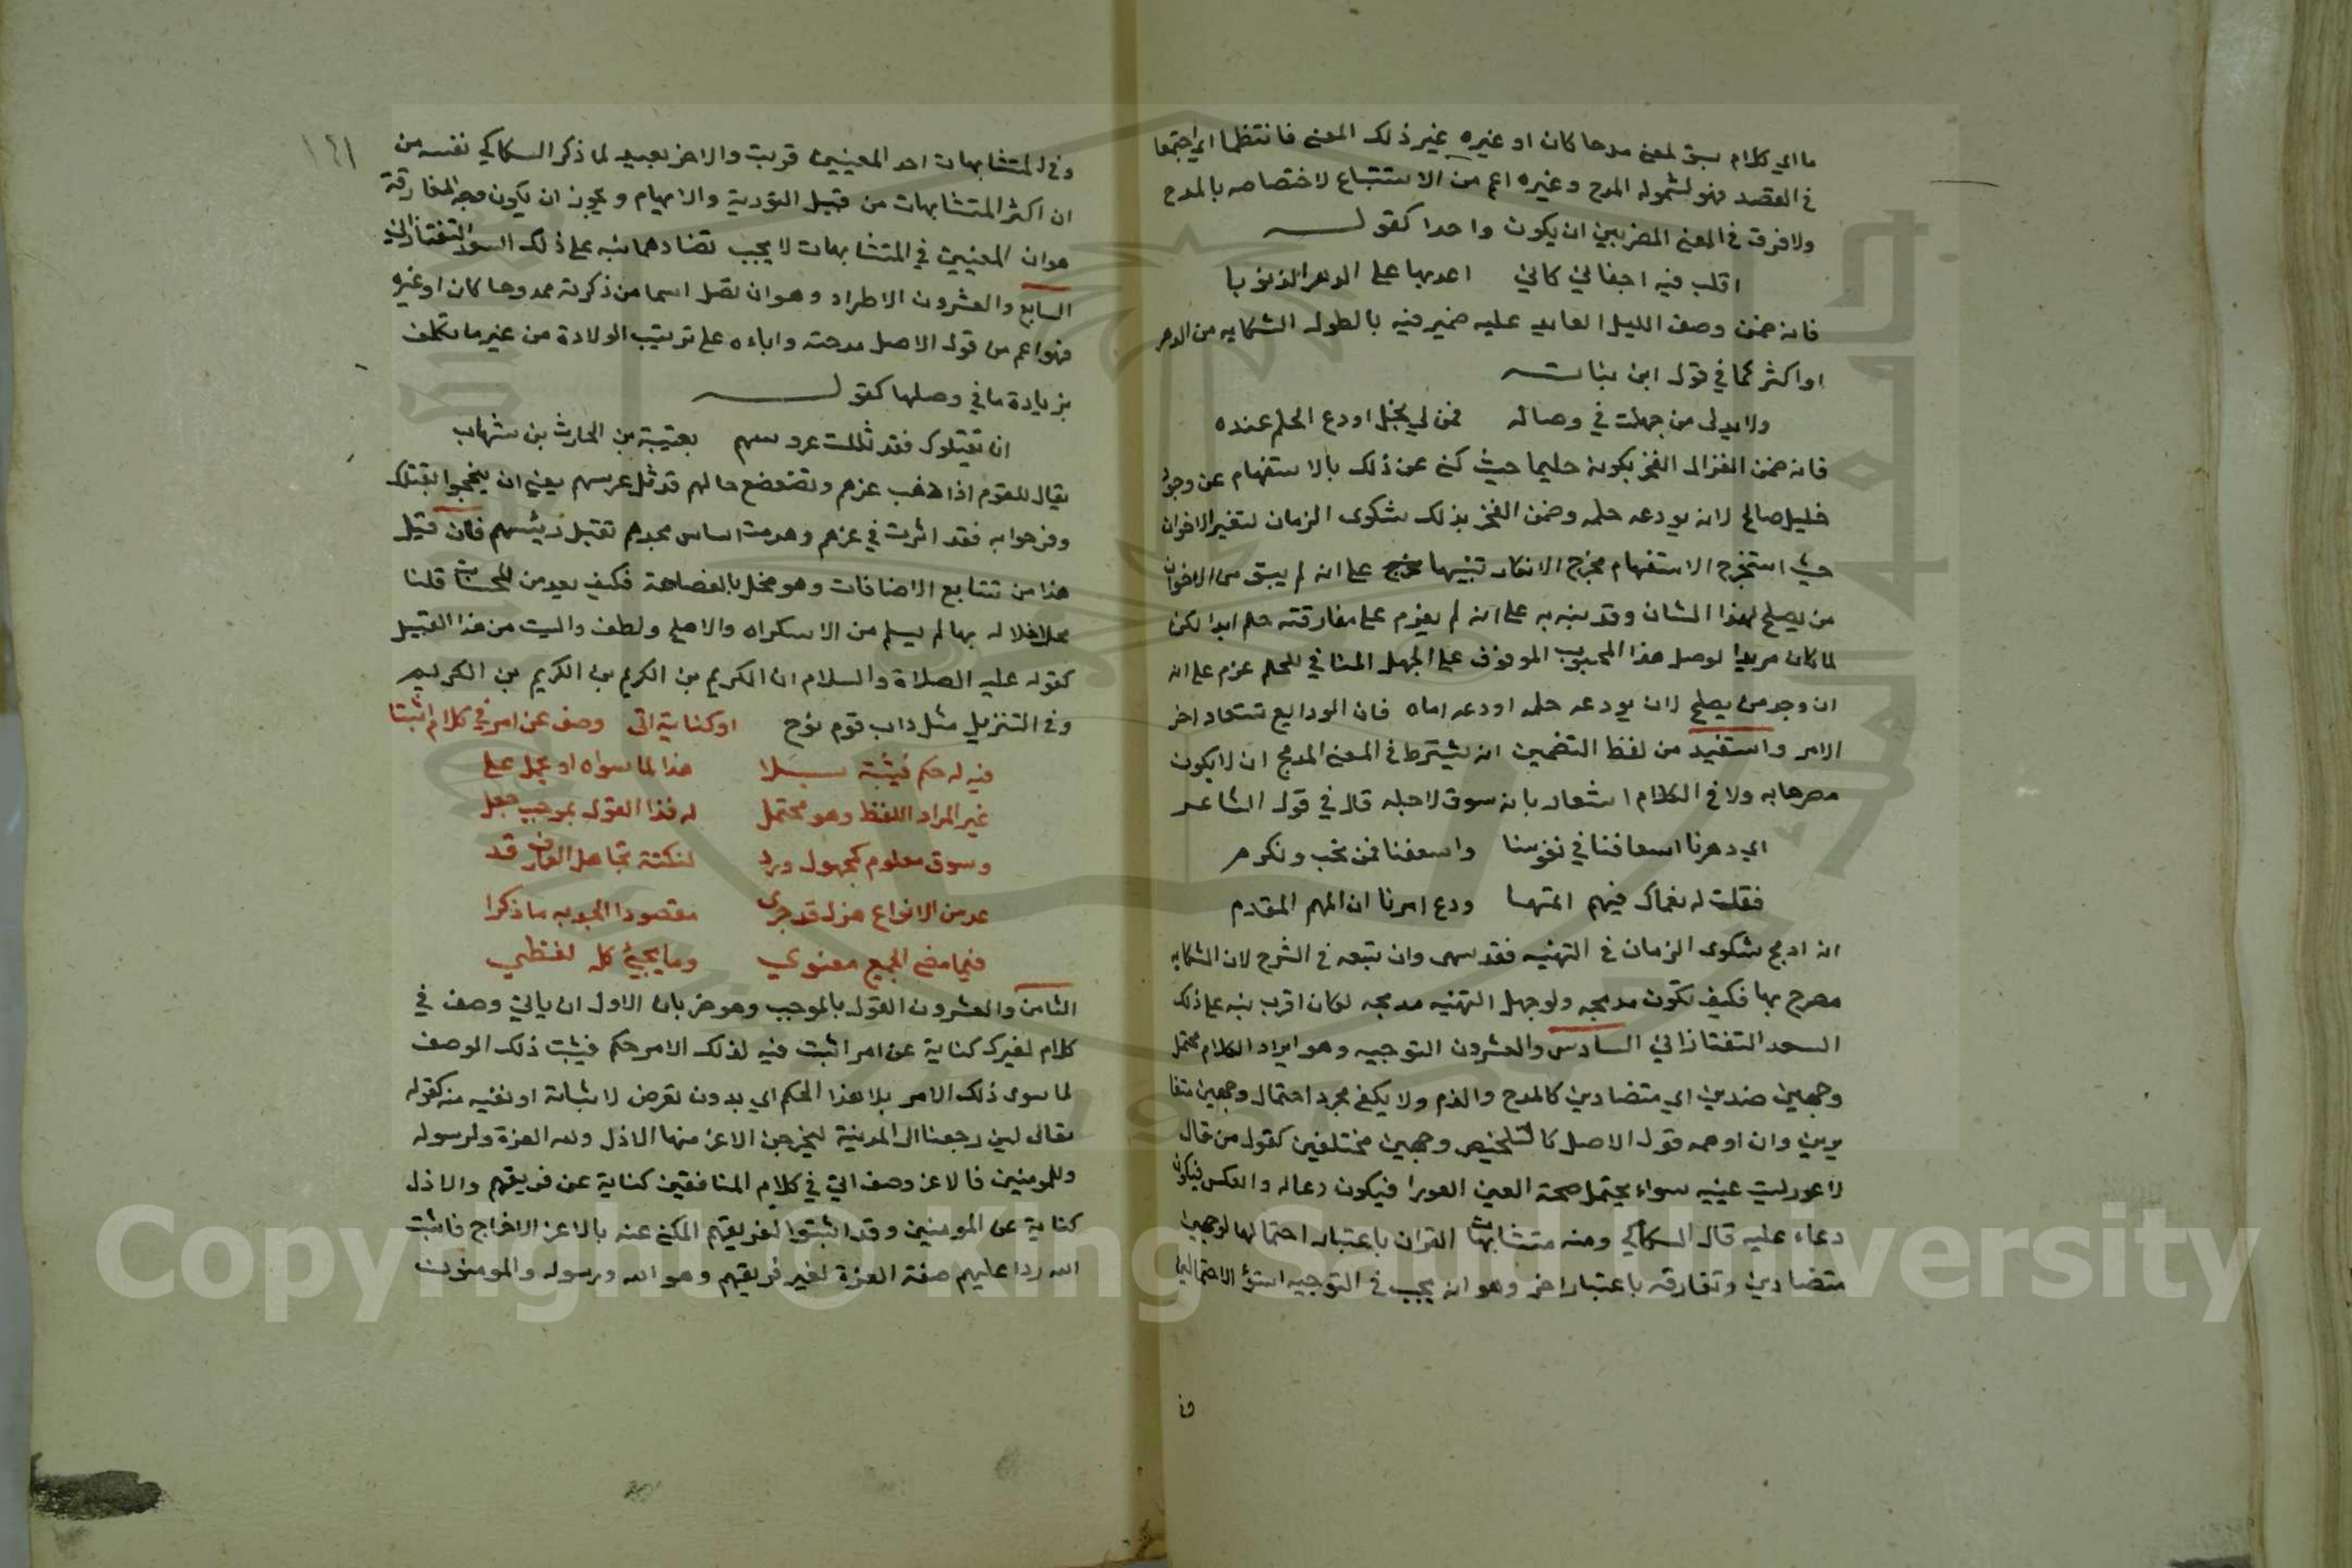 ما اي كلام سبق لمعنى مدحا كان او غيره غير ذلك المعنى فانتظما اي اجتمعا
في القصد فهو لشموله المدح وغيره اعم من الاستتباع لاختصاصه بالمدح
ولا فرق في المعنى المضربين ان يكون واحدا كقوله
اقلب فيه اجفاني كاني اعد بها على الدهر الذنوبا
فانه ضمن وصف الليل العايد عليه ضمير فيه بالطول الشكايه من الدهر
او اكثر كما في قول ابن نباته
ولا بد لى من جهلت في وصاله فمن لي بخل اودع الحلم عنده
فانه ضمن الغزال الفخر بكونه حليما حيث كنى عن ذلك بالاستفهام عن وجود
خليل صالح لان يودعه حلمه وضمن الفخر بذلك شكوى الزمان لتغير الاخوان
حيث استخرج الاستفهام مخرج الانكار تنبيها على انه لم يبق من الاخوان
من يصلح لهذا الشان وقد نبه به على انه لم يعزم على مفارقته حلمه ابدا لكن
لما كان مريدا لوصل هذا المحبوب الموقوف على الجهل المنافي للحلم عزم على انه
ان وجد من يصلح لان يودعه حلمه اودعه اياه فان الودايع تستعاد اخر
الامر واستفيد من لفظ التضمين انه يشترط في المعنى المدمج ان لا يكون
مصرحا به ولا في الكلام اشعار بانه سوق لاجله قال في قول الشاعر
ابى دهرنا اسعافنا في نفوسنا واسعفنا فمن نحب ونكرم
فقلت له نعماك فيهم اتمها ودع امرنا ان المهم المقدم
انه ادمج شكوى الزمان في التهنيه فقد سهى وان تبعه في الشرح لان الشكايه
مصرح بها فكيف تكون مدمجه ولو جعل التهنيه مدمجه لكان اقرب نبه على ذلك
السعد التفتازاني السادس والعشرون التوجيه وهو ايراد الكلام محتمل
وجهين ضدين اي متضادين كالمدح والذم ولا يكفي مجرد احتمال وجهين متغا
يرين وان اوهمه قول الاصل كالتلخيص وجهين مختلفين كقول من قال
لاعور ليت عينيه سواء يحتمل صحة العين العورا فيكون دعا له والعكس فيكون
دعاء عليه قال السكاكي ومنه متشابهات القران باعتبار احتمالها لوجهين
متضادين وتفارقه باعتبار اخر وهو انه يجب في التوجيه استوا الاحتمالين
وفي
١٤١
وفي المتشابهات احد المعنيين قريب والاخر بعيد لما ذكر السكاكي نفسه من
ان اكثر المتشابهات من قبيل التورية والايهام ويجوز ان يكون وجه المفارقة
هو ان المعنيين في المتشابهات لا يجب تضادهما نبه على ذلك السعد التفتازاني
السابع والعشرون الاطراد وهو ان تصل اسما من ذكرته ممدوحا كان او غيره
فهو اعم من قول الاصل مدحته واباءه على ترتيب الولادة من غير ما تكلف
بزيادة ما في وصلها كقوله
ان تقتلوك فقد ثللت عروسهم بعتيبة بن الحارث بن شهاب
يقال للقوم اذا ذهب عزهم وتضعضع حالهم قد ثل عرشهم يعني ان يتبجحوا بقتلك
وفرحوا به فقد اثرت في عزهم وهدمت اساس مجدهم بقتيل رئيسهم فان قيل
هذا من تتابع الاضافات وهو مخل بالفصاحة فكيف يعد من المحسنات قلنا
محل اخلاله بها لم يسلم من الاستكراه والا ملح ولطف والبيت من هذا القبيل
كقوله عليه الصلاة والسلام ان الكريم بن الكريم بن الكريم بن الكريم
وفي التنزيل مثل داب قوم نوح او كناية اتى وصف عن امر في كلام اثبتا
فيه له حكم فيثبته بلا هذا لما سواه او يحمل على
غير المراد اللفظ وهو محتمل له فذا القول بموجب جعل
وسوق معلوم كمجهول ورد لنكتة تجاهل العارف قد
عد من الانواع هزل قد جرى مقصودا الجد به ما ذكرا
فيما مضى الجميع معنوي وما يجيئ كله لفظي
الثامن والعشرون القول بالموجب وهو ضربان الاول ان ياتي وصف في
كلام لغيرك كناية عن امر اثبت فيه لذلك الامر حكم فيثبت ذلك الوصف
لما سوى ذلك الامر بلا هذا الحكم اي بدون تعرض لاثباته او نفيه منه كقوله
تعالى لين رجعنا الى المدينة ليخرجن الاعز منها الاذل ولله العزة ولرسوله
وللمومنين فالاعز وصف اتي في كلام المنافقين كناية عن فريقهم والاذل
كناية عن المومنين وقد اثبتوا لفريقهم المكنى عنه بالاعز الاخراج فاثبت
الله ردا عليهم صفة العزة لغير فريقهم وهو الله ورسوله والمومنون
Copyright © King Saud University